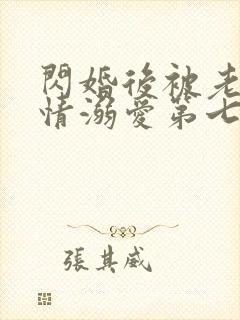 閃婚後被老
情溺愛第七
張其威